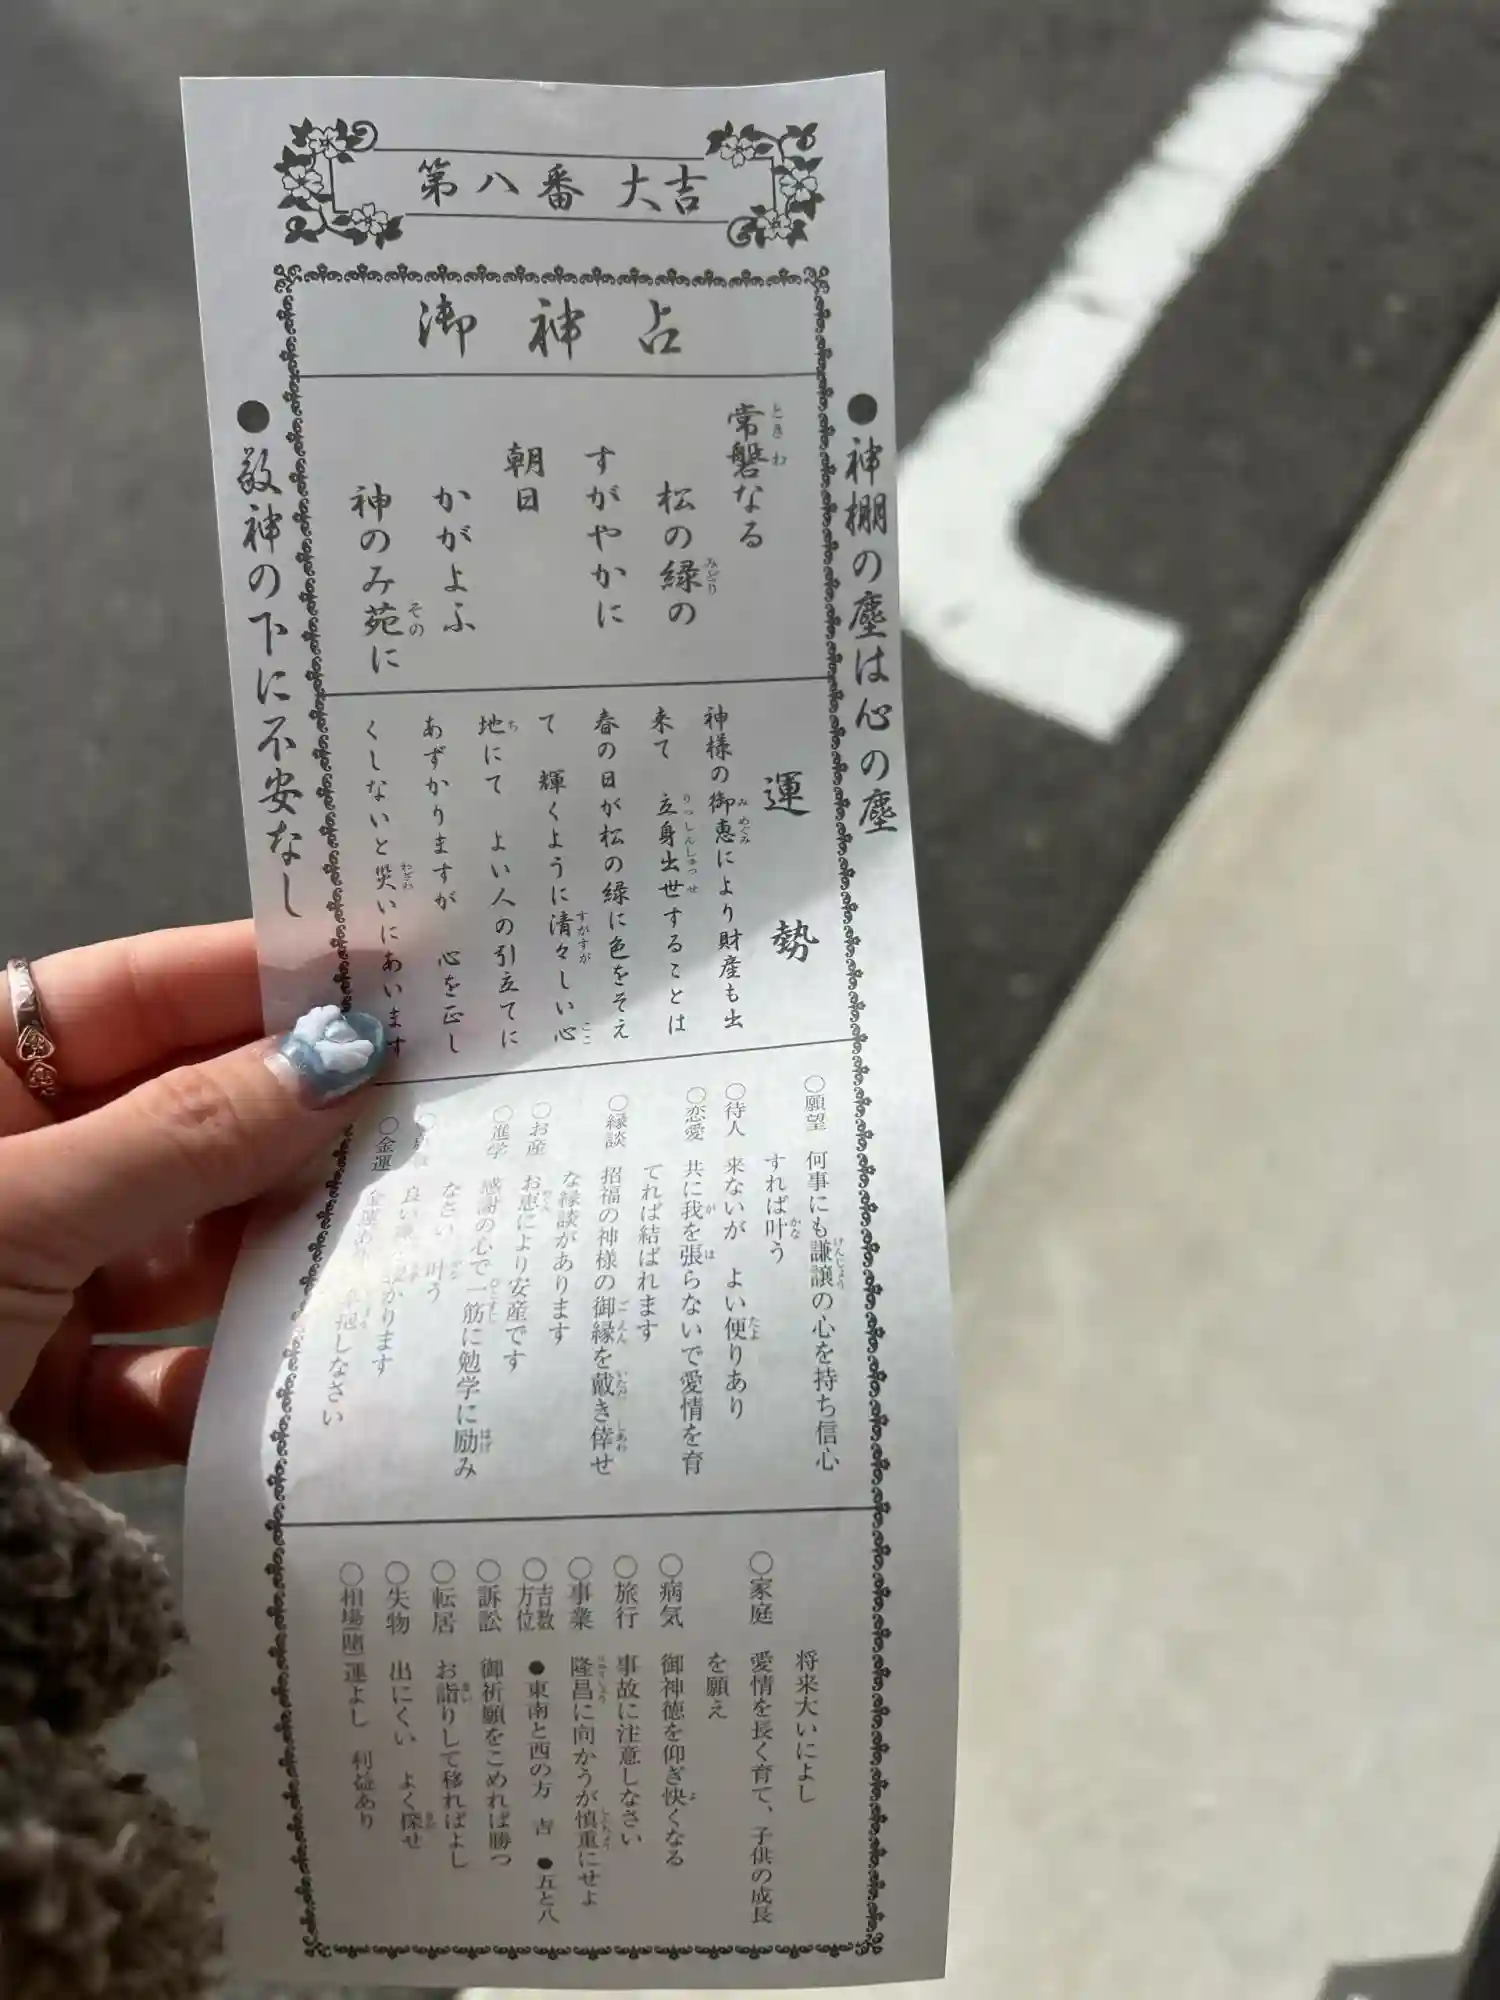 第八番 大吉
御神占
●神棚の塵は心の塵
常磐なる
松の緑の
すがやかに
朝日
かがよふ
神のみ苑に
●敬神の下に不安なし
運勢
神様の御恵により財産も出
来て 立身出世することは
春の日が松の緑に色をそえ
て 輝くように清々しい心
地にて よい人の引立てに
あずかりますが 心を正し
くしないと災いにあいます
○願望 何事にも謙譲の心を持ち信心
すれば叶う
○待人 来ないが よい便りあり
○恋愛 共に我を張らないで愛情を育
てれば結ばれます
○縁談 招福の神様の御縁を戴き倖せ
な縁談があります
○お産 お恵により安産です
○進学 感謝の心で一筋に勉学に励み
なさい 叶う
良い
かります
○金運 金運あれ
しなさい
将来大いによし
○家庭 愛情を長く育て、子供の成長
を願え
○病気 御神徳を仰ぎ快くなる
○旅行 事故に注意しなさい
○事業 隆昌に向かうが慎重にせよ
○吉数方位 ●東南と西の方 吉 ●五と八
○訴訟 御祈願をこめれば勝つ
○転居 お詣りして移ればよし
○失物 出にくい よく探せ
○相場(賭) 運よし 利益あり